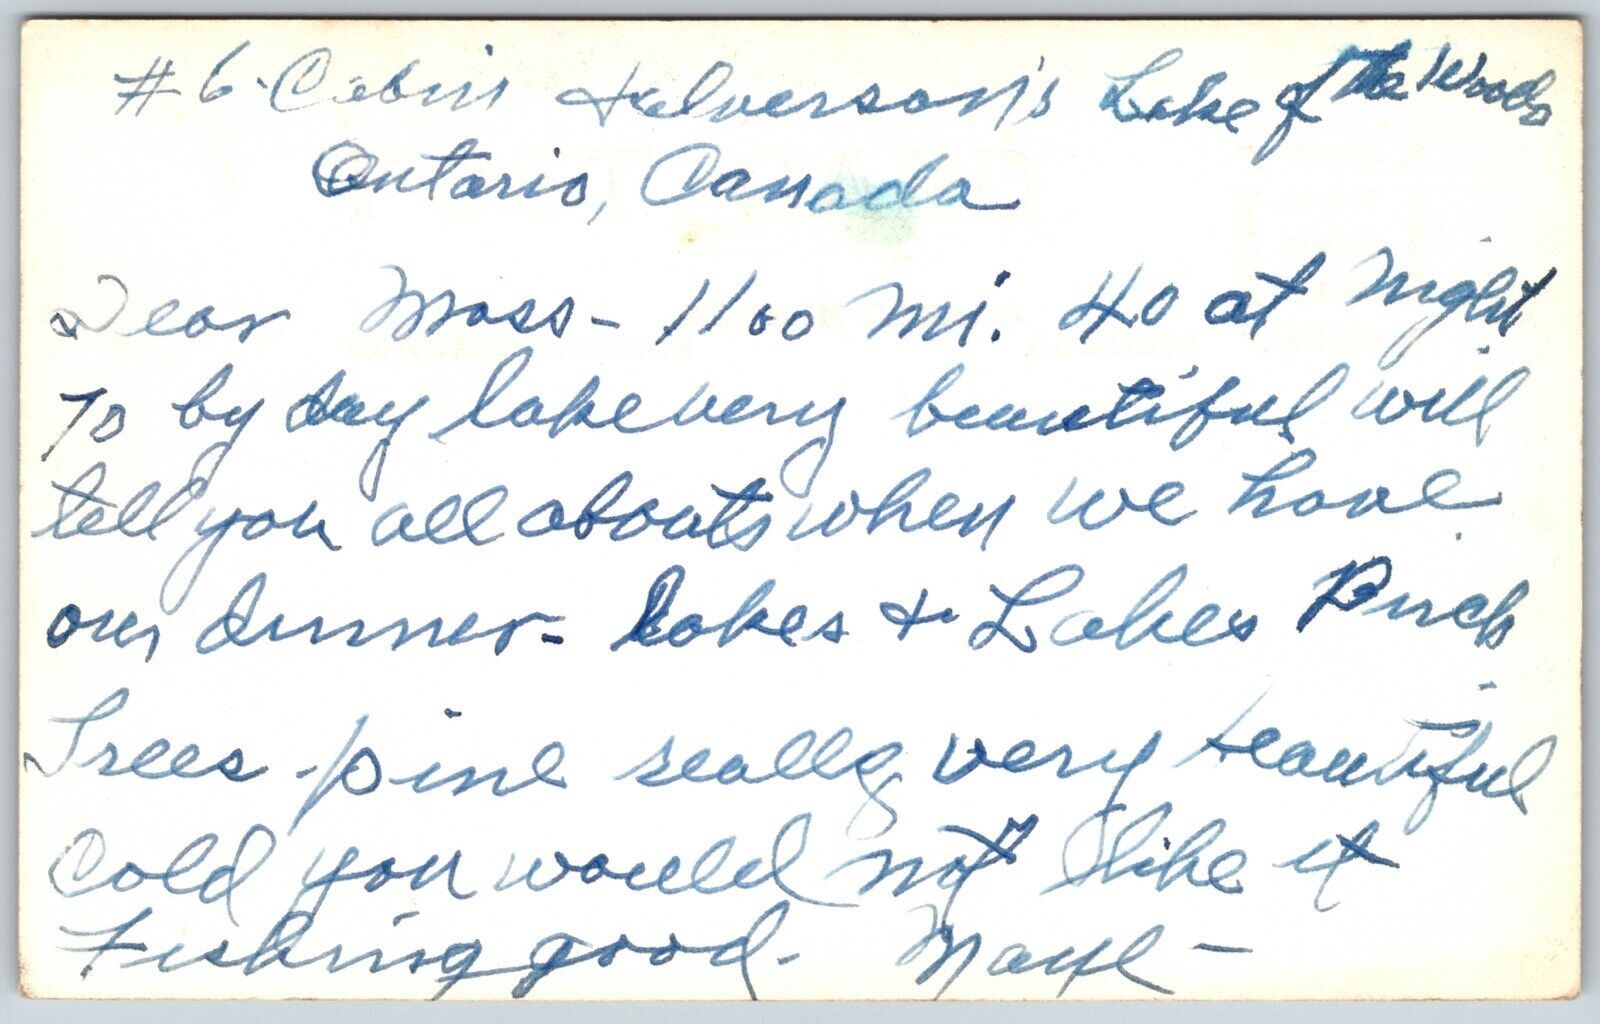 #6 Cabin Halverson's Lake of the Woods
Ontario, Canada
Dear Moss - 1100 mi. 40 at night
70 by day lake very beautiful will
tell you all abouts when we have
our dinner - Lakes + Lakes Birch
Trees - pine really very beautiful
Cold you would not like it
Fishing good.